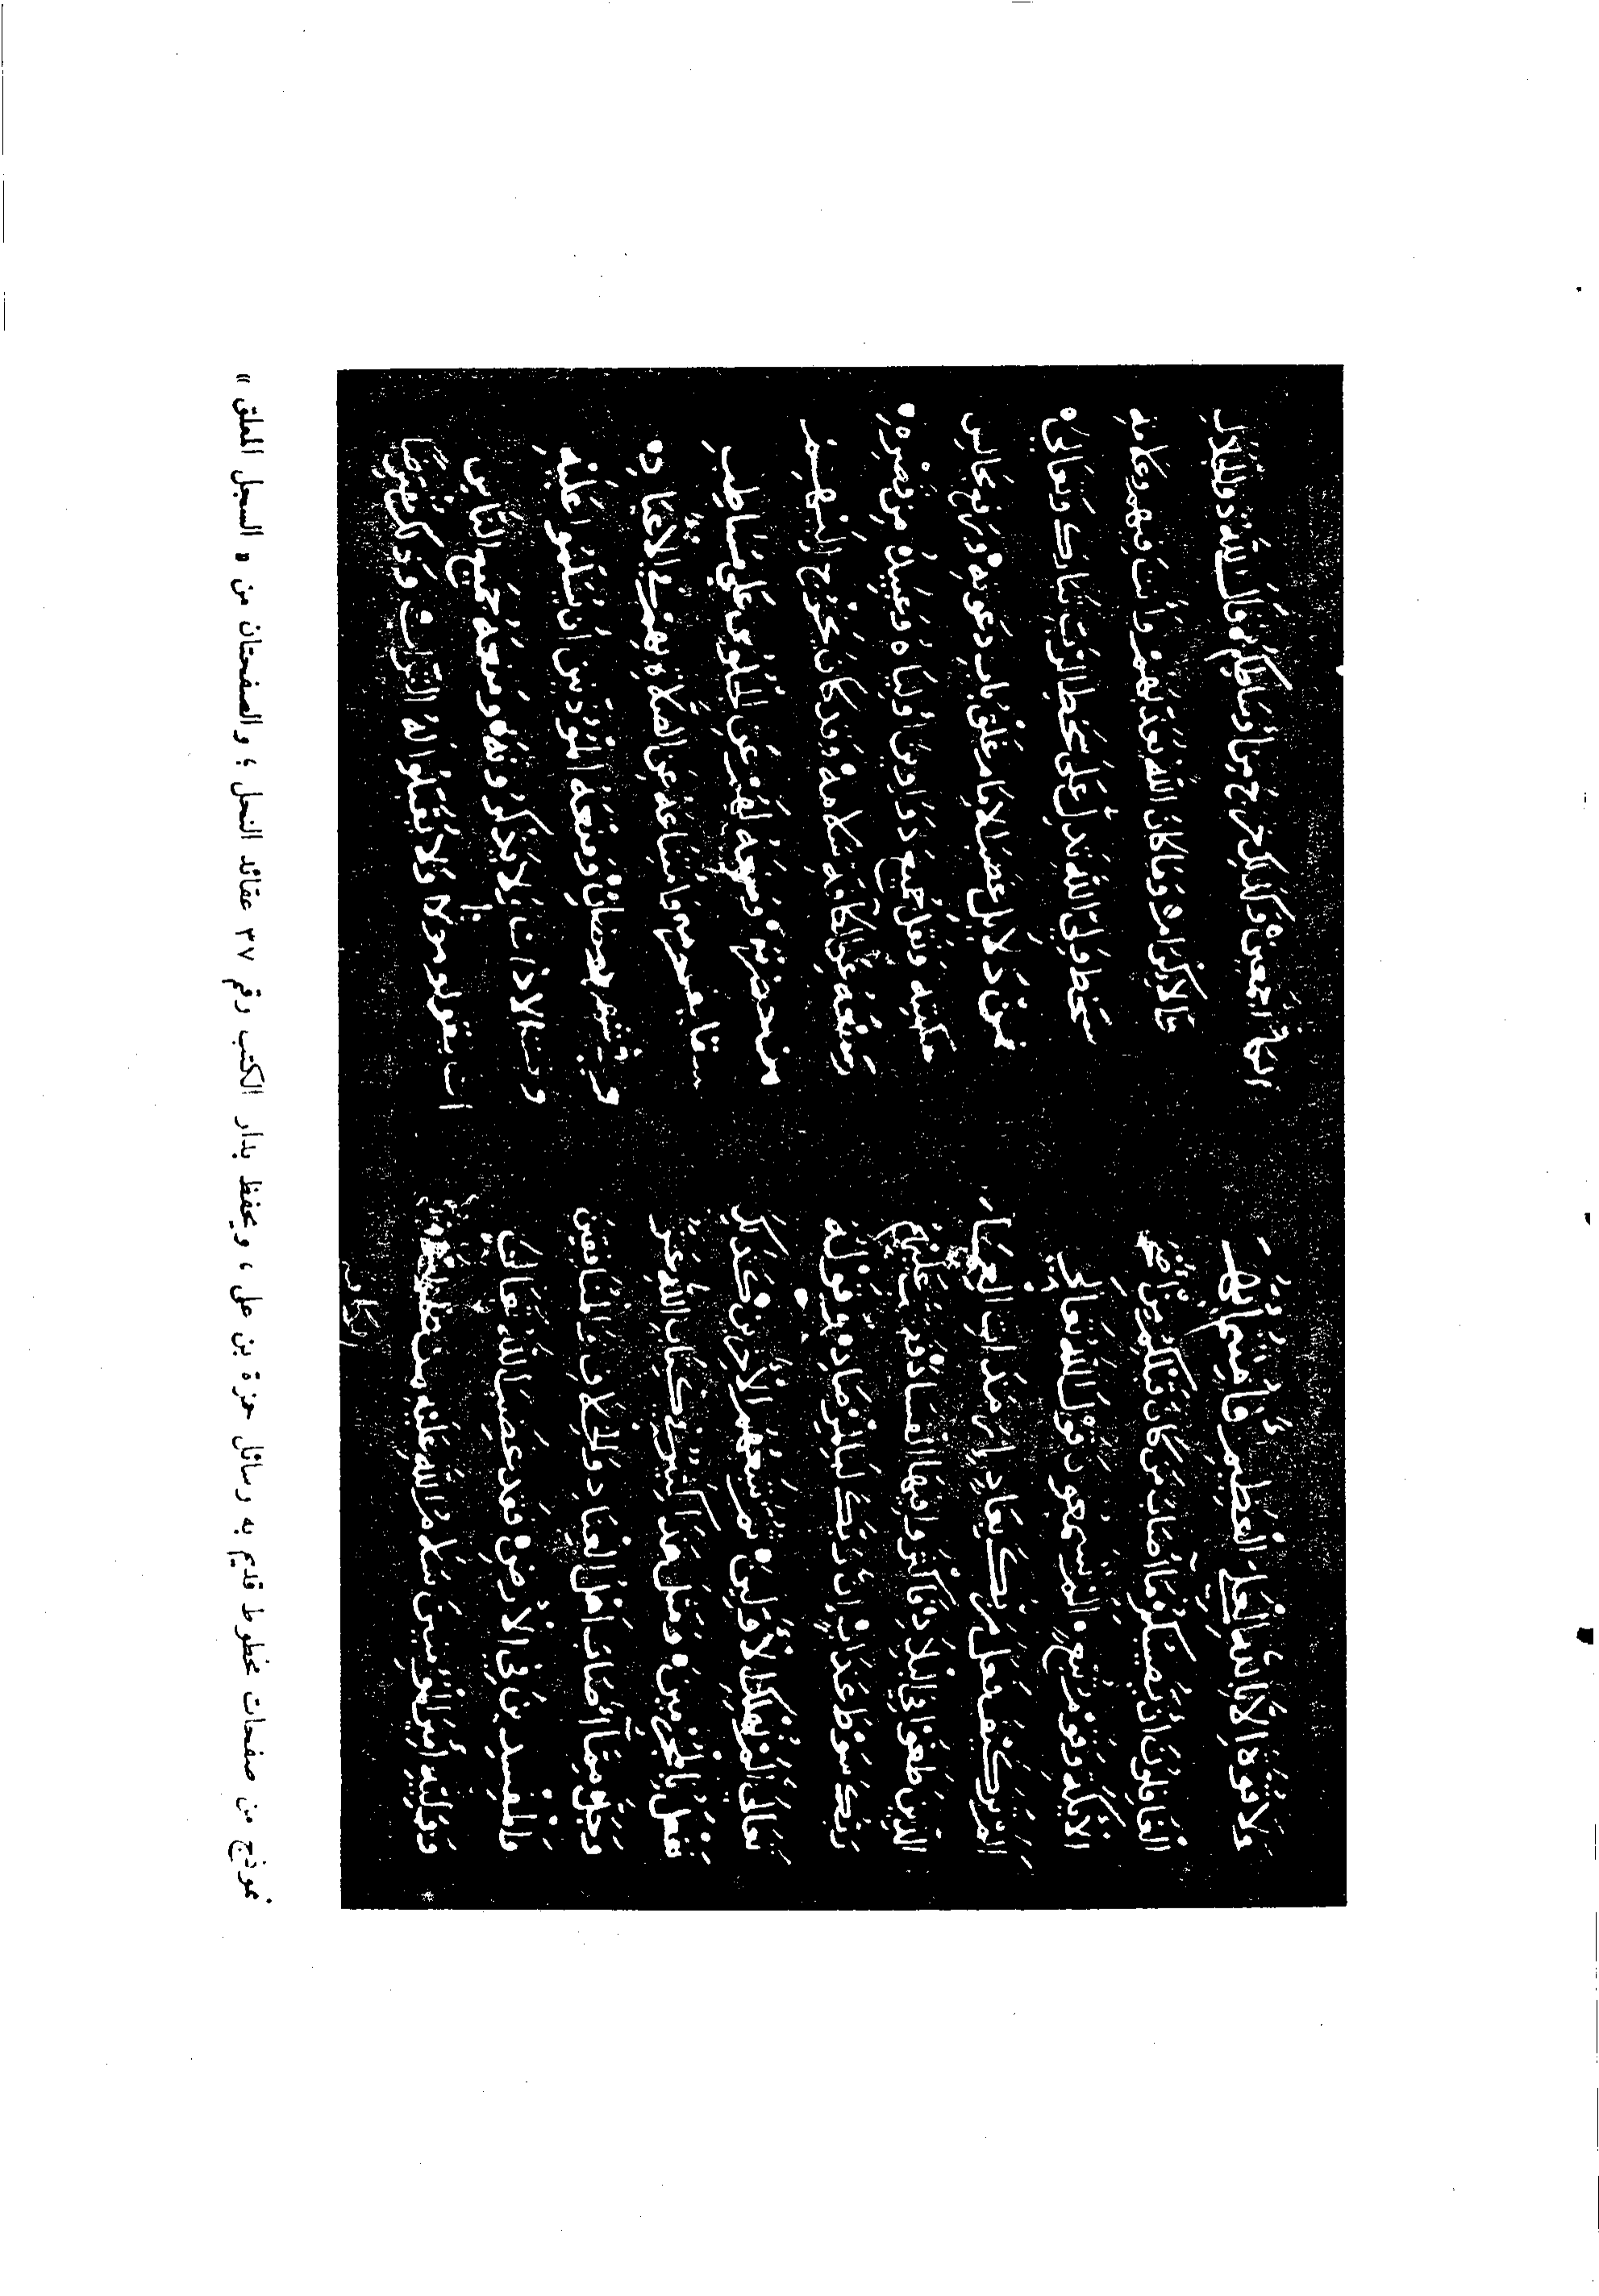 ولا قوة الا بالله العلي العظيم ايها
الغافلون ان يصيبكم ما اصاب من كان قبلكم من اصحاب
الايكة وقوم تبع الم تسمعوا قول الله تعالى
الم تر كيف فعل ربك بعاد ارم ذات العماد
الذين طغوا في البلاد فاكثروا فيها الفساد فصب عليهم
ربك سوط عذاب ان ربك لبالمرصاد وقوله
تعالى الم نهلك الاولين ثم نتبعهم الاخرين كذلك
نفعل بالمجرمين ومثل هذا كثير في كتاب الله عز
وجل مما اصاب اهل العناد والخلاف والمنافقين
والمفسدين في الارض فقد غضب الله تعالى
ووليه امير المؤمنين سلام الله عليه من عظم
اجمعين ولذلك خرج من اوساطكم قال الله ذو الجلال
والاكرام وما كان الله ليعذبهم وانت فيهم وعلامة
سخط ولي الله تدل على سخط الرب تبارك وتعالى
فمن دلايل غضب الامام غلق باب دعوته ورفع مجالس
حكمته ونقل جميع دواوين اوليائه وعبيده من قصره
ومنعه عن الكافة سلامه وقد كان يخرج اليهم
من حضرته ومنعه لهم عن الجلوس على مصاطب
سقايف حرمه وامتناعه عن الصلاة بهم في الاعياد
وفي شهر رمضان ومنعه المؤذنين ان يسلموا عليه
وقت الاذان ولا يذكرونه ومنعه جميع الناس
ان يقولوا مولانا ولا يقبلوا له التراب وذلك مفترض
نموذج من صفحات مخطوط قديم به رسائل حمزة بن على ، ويحفظ بدار الكتب رقم ٣٧ عقائد النحل ؛ والصفحتان من « السجل المعلق »